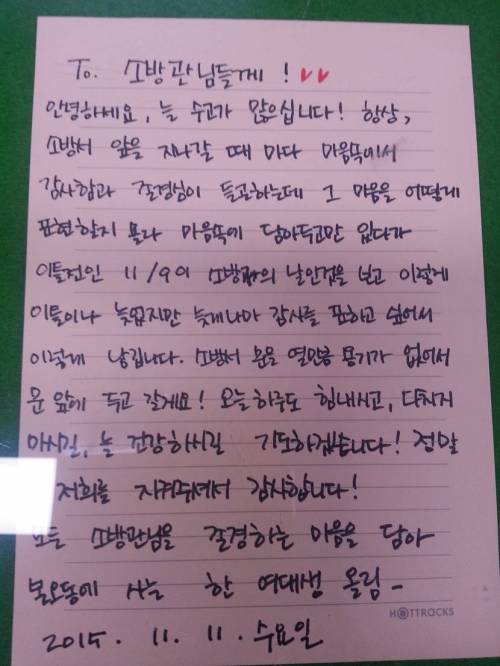 To. 소방관님들께 !
안녕하세요, 늘 수고가 많으십니다! 항상,
소방서 앞을 지나갈 때 마다 마음속에서
감사함과 존경심이 들곤하는데 그 마음을 어떻게
표현할지 몰라 마음속에 담아두고만 있다가
이틀전인 11/9이 소방관의 날인검을 보고 이렇게
이틀이나 늦었지만 늦게나마 감사를 표하고 싶어서
이렇게 남깁니다. 소방서 문을 열만한 용기가 없어서
문 앞에 두고 갈게요! 오늘하루도 힘내시고, 다치지
마시길, 늘 건강하시길 기도하겠습니다! 정말
저희를 지켜주셔서 감사합니다!
모든 소방관님을 존경하는 마음을 담아
불오동에 사는 한 여대생 올림-
HOTTRACKS
2015. 11. 11. 수요일